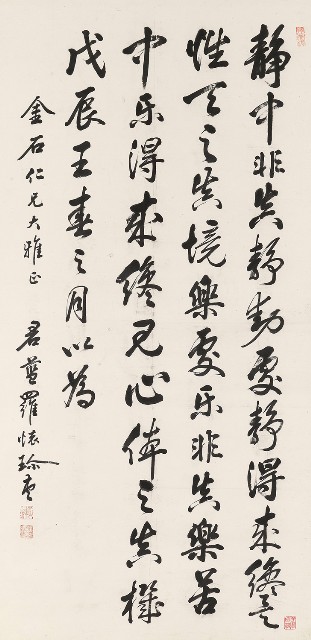 靜中非真靜動處靜得來纔是
性天之真境樂處乐非真樂苦
中乐得來纔見心体之真機
戊辰王春之月以為
金石仁兄大雅正 君藍羅